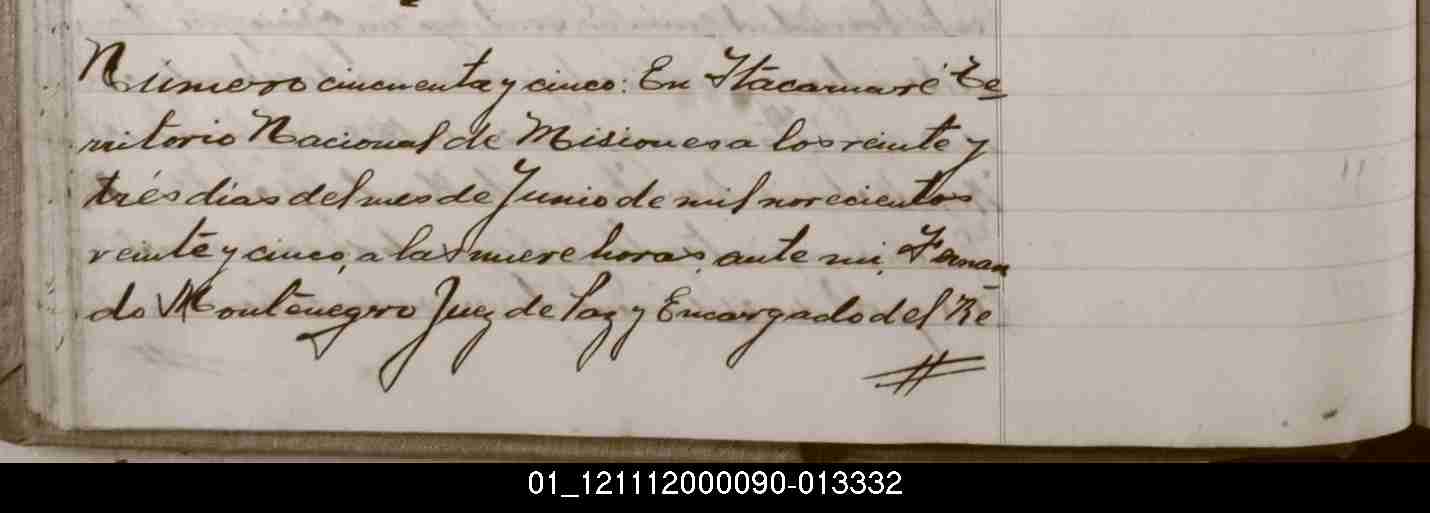 Número cincuenta y cinco: En Itacaruaré Te-
rritorio Nacional de Misiones a los veinte y
trés dias del mes de Junio de mil novecientos
veinte y cinco, a las nueve horas, ante mi, Fernan
do Montenegro Juez de Paz y Encargado del Re
01_121112000090-013332